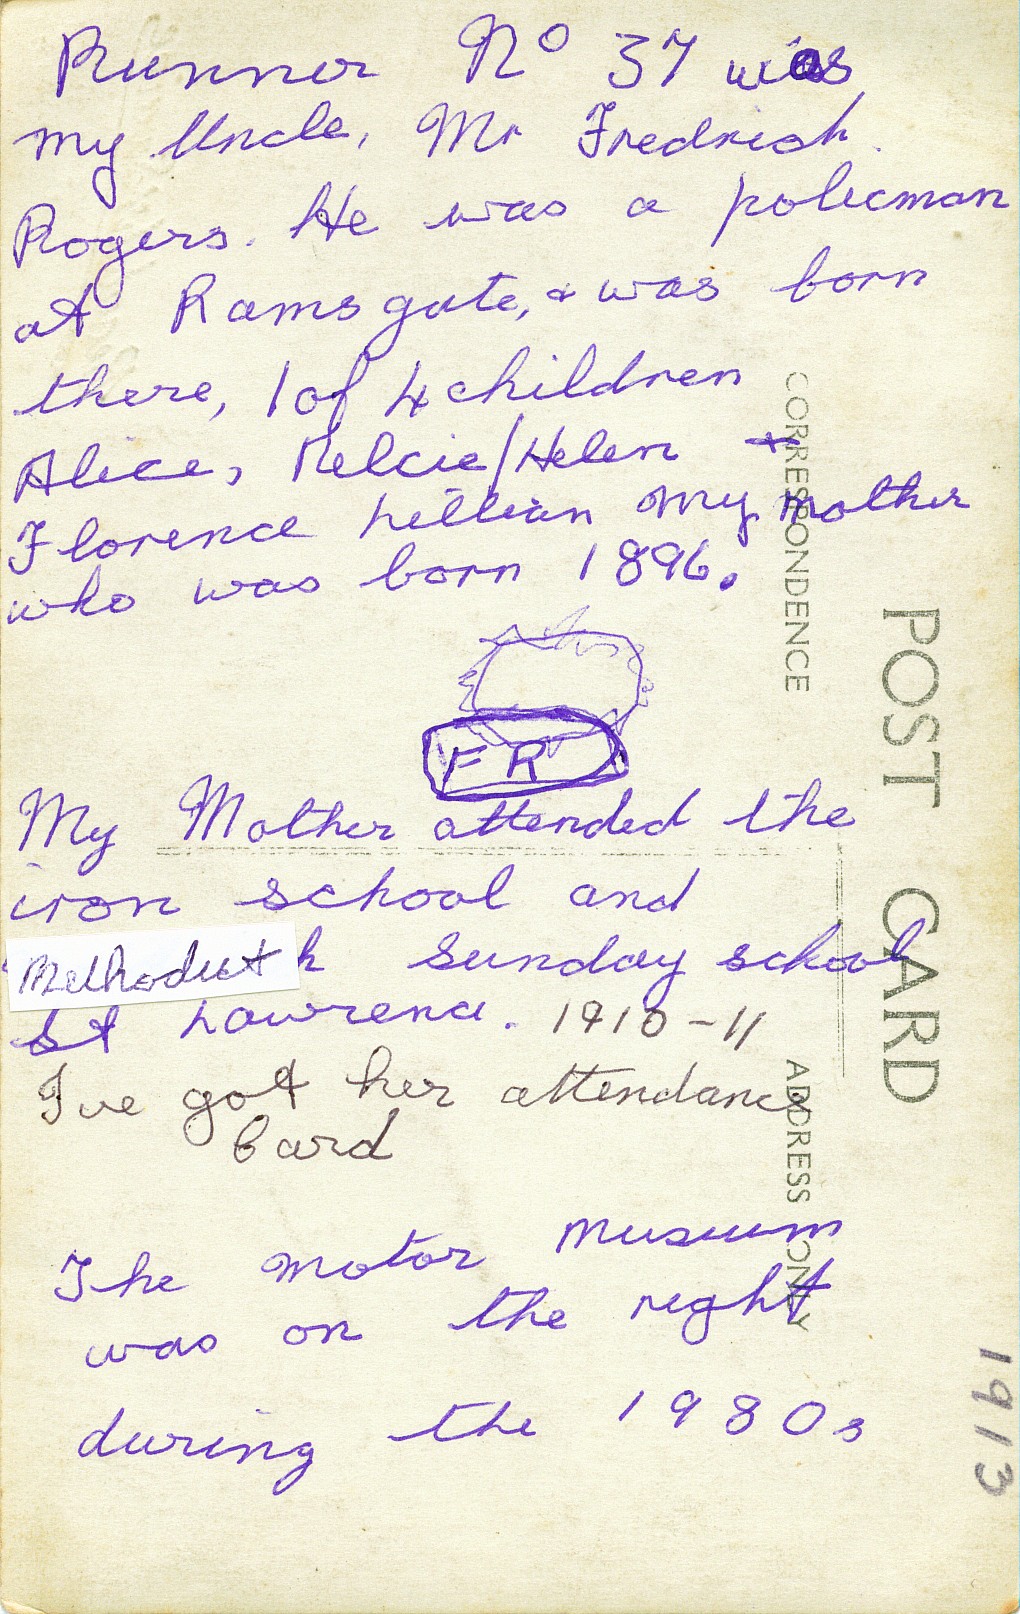 Runner No 37 was
my Uncle, Mr Fredrich
Rogers. He was a policman
at Ramsgate, & was born
there, 1 of 4 children
Alice, Nelcie/Helen +
Florence Lillian my mother
who was born 1896.
FR
My Mother attended the
iron school and
Methodist h Sunday school
St Lawrence. 1910-11
I've got her attendance
Card
The motor museum
was on the right
during the 1980s
CORRESPONDENCE
ADDRESS ONLY
POST CARD
1913